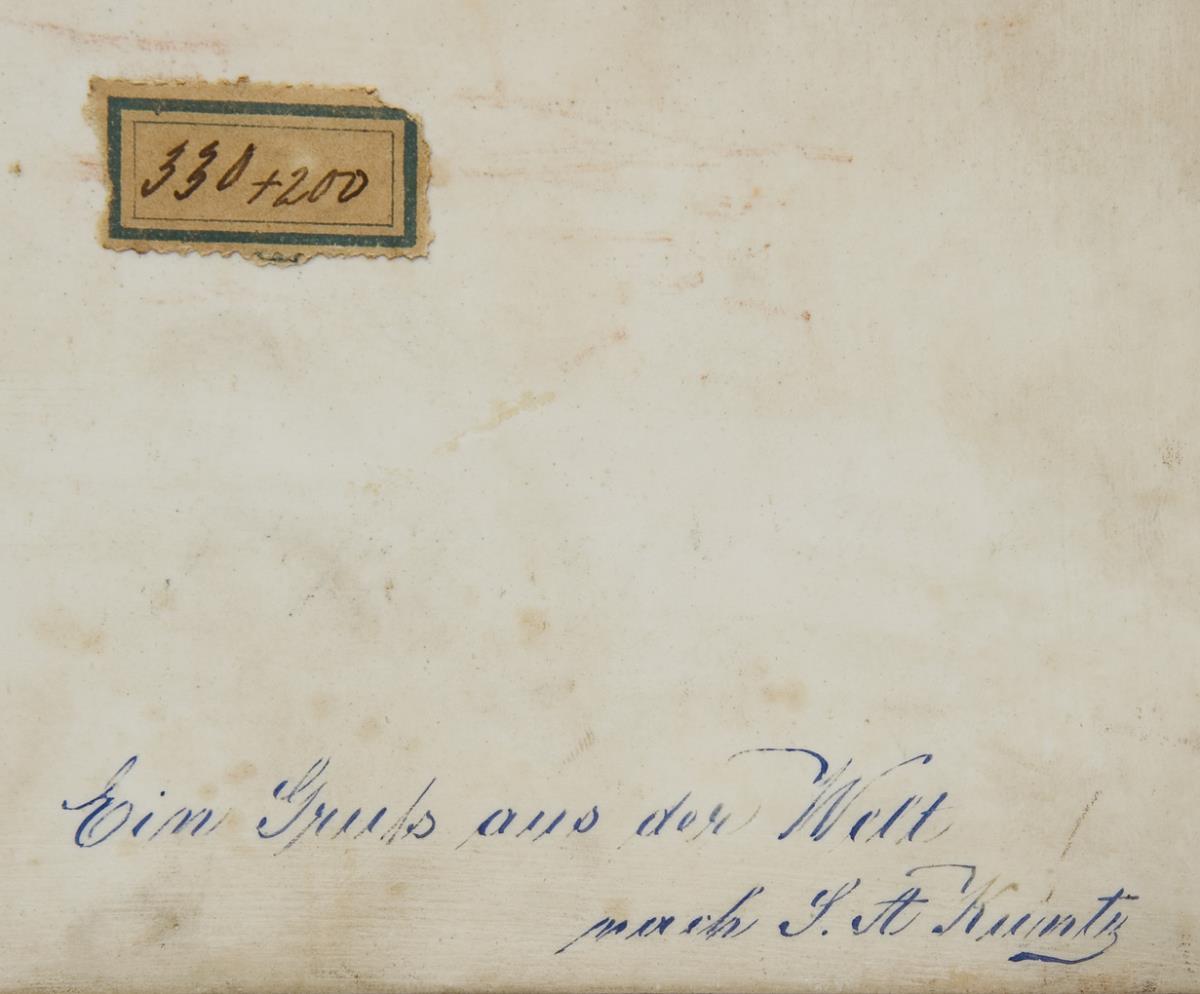 330+200
Ein Gruß aus der Welt
nach S. A Kuntz